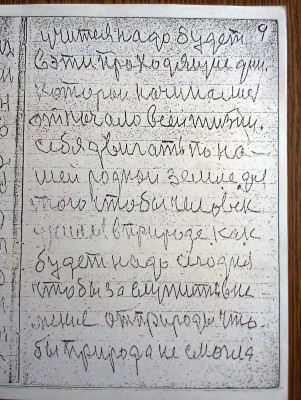 9
учится надо будет.
в эти проходящие дни.
которы начинались
от начало всей жизни.
себя двигать по на-
шей родной земле для
того чтобы человек
в природе как
будет надо сегодня
чтобы заслужить вни
мание от природы что-
бы природа не смогла